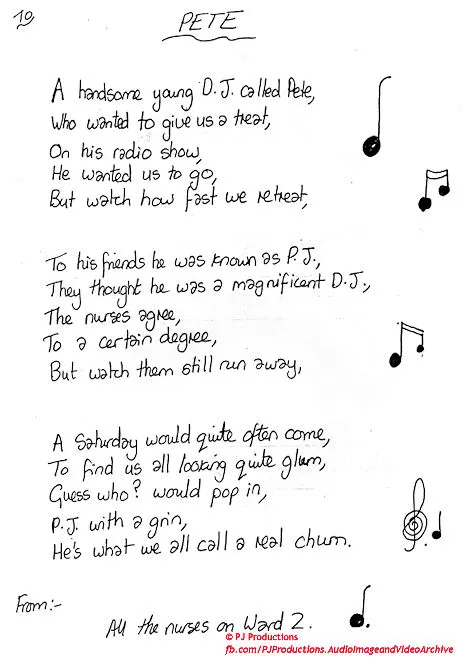 19
PETE
A handsome young D.J. called Pete,
Who wanted to give us a treat,
On his radio show,
He wanted us to go,
But watch how fast we retreat,
To his friends he was known as P.J.,
They thought he was a magnificent D.J.,
The nurses agree,
To a certain degree,
But watch them still run away,
A Saturday would quite often come,
To find us all looking quite glum,
Guess who? would pop in,
P.J. with a grin,
He's what we all call a real chum.
From:-
All the nurses on Ward 2.
© PJ Productions
fb.com/PJProductions.AudioImageandVideoArchive